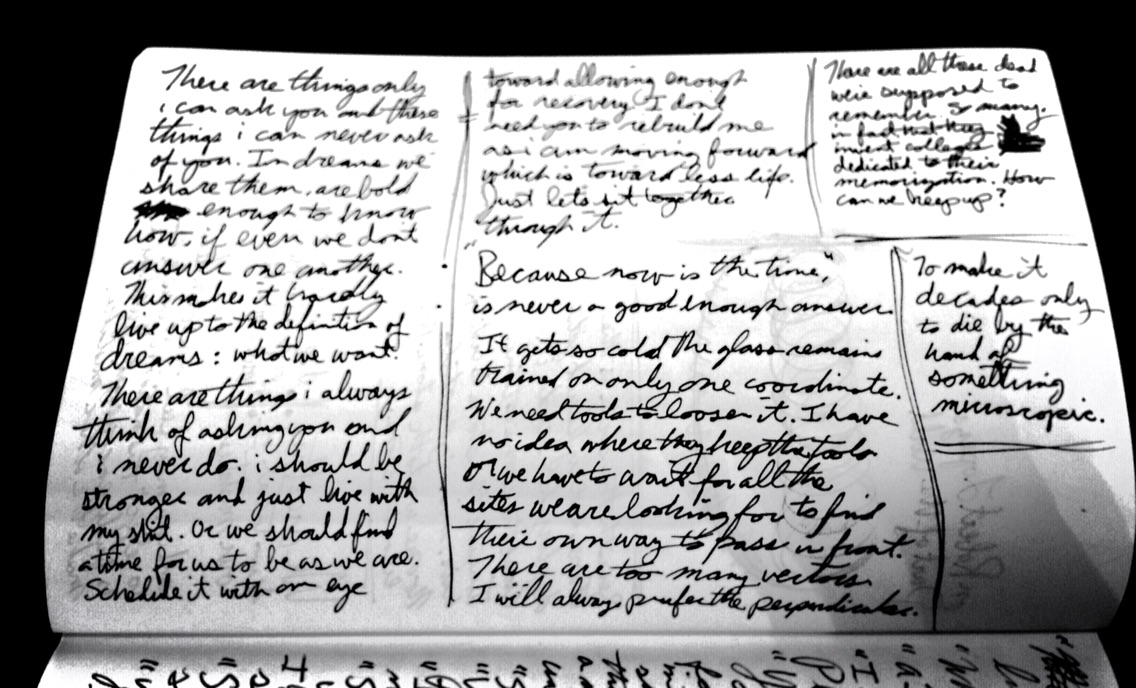 There are things only
i can ask you and these
things i can never ask
of you. In dreams we
share them, are bold
enough to know
how, if even we dont
answer one another.
This makes it hardly
live up to the definition of
dreams: what we want.
There are things i always
think of asking you and
i never do. i should be
stronger and just live with
my shit. Or we should find
a time for us to be as we are.
Schedule it with an eye
toward allowing enough
for recovery. I dont
need you to rebuild me
as i am moving forward
which is toward less life.
Just lets sit together
through it.
"Because now is the time,"
is never a good enough answer.
It gets so cold the glass remains
trained on only one coordinate.
We need tools to loosen it. I have
no idea where they keep the tools
Or we have to wait for all the
sites we are looking for to find
their own way to pass in front.
There are too many vectors.
I will always prefer the perpendicular.
There are all these dead
we're supposed to
remember. So many,
in fact that they
invent colleges
dedicated to their
memorization. How
can we keep up?
To make it
decades only
to die by the
hand of
something
microscopic.